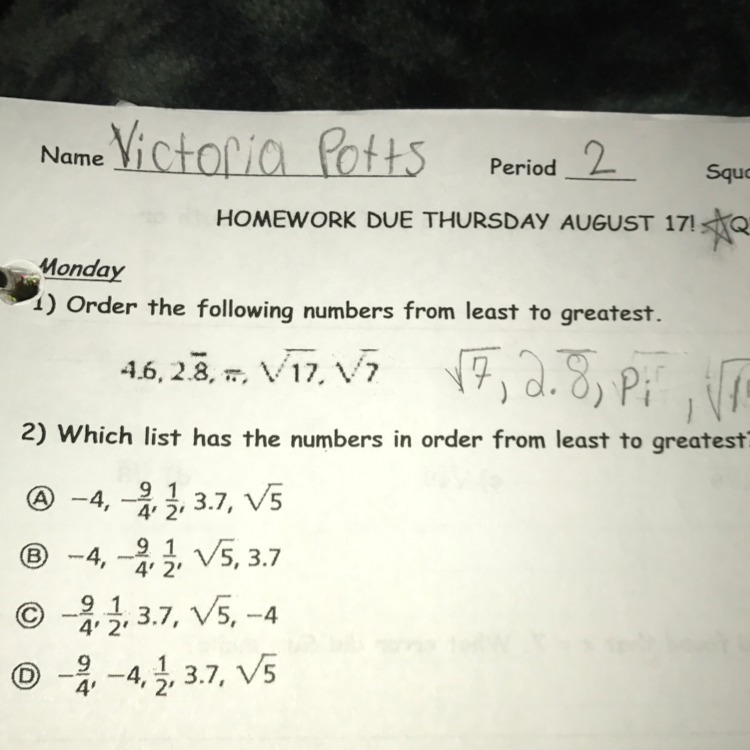 Name Victoria Potts Period 2
HOMEWORK DUE THURSDAY AUGUST 17!
Monday
1) Order the following numbers from least to greatest.
4.6, 2.8̅, π, √17, √7 √7, 2.8̅, Pi,
2) Which list has the numbers in order from least to greatest?
Ⓐ −4, −9/4, 1/2, 3.7, √5
Ⓑ −4, −9/4, 1/2, √5, 3.7
Ⓒ −9/4, 1/2, 3.7, √5, −4
Ⓓ −9/4, −4, 1/2, 3.7, √5